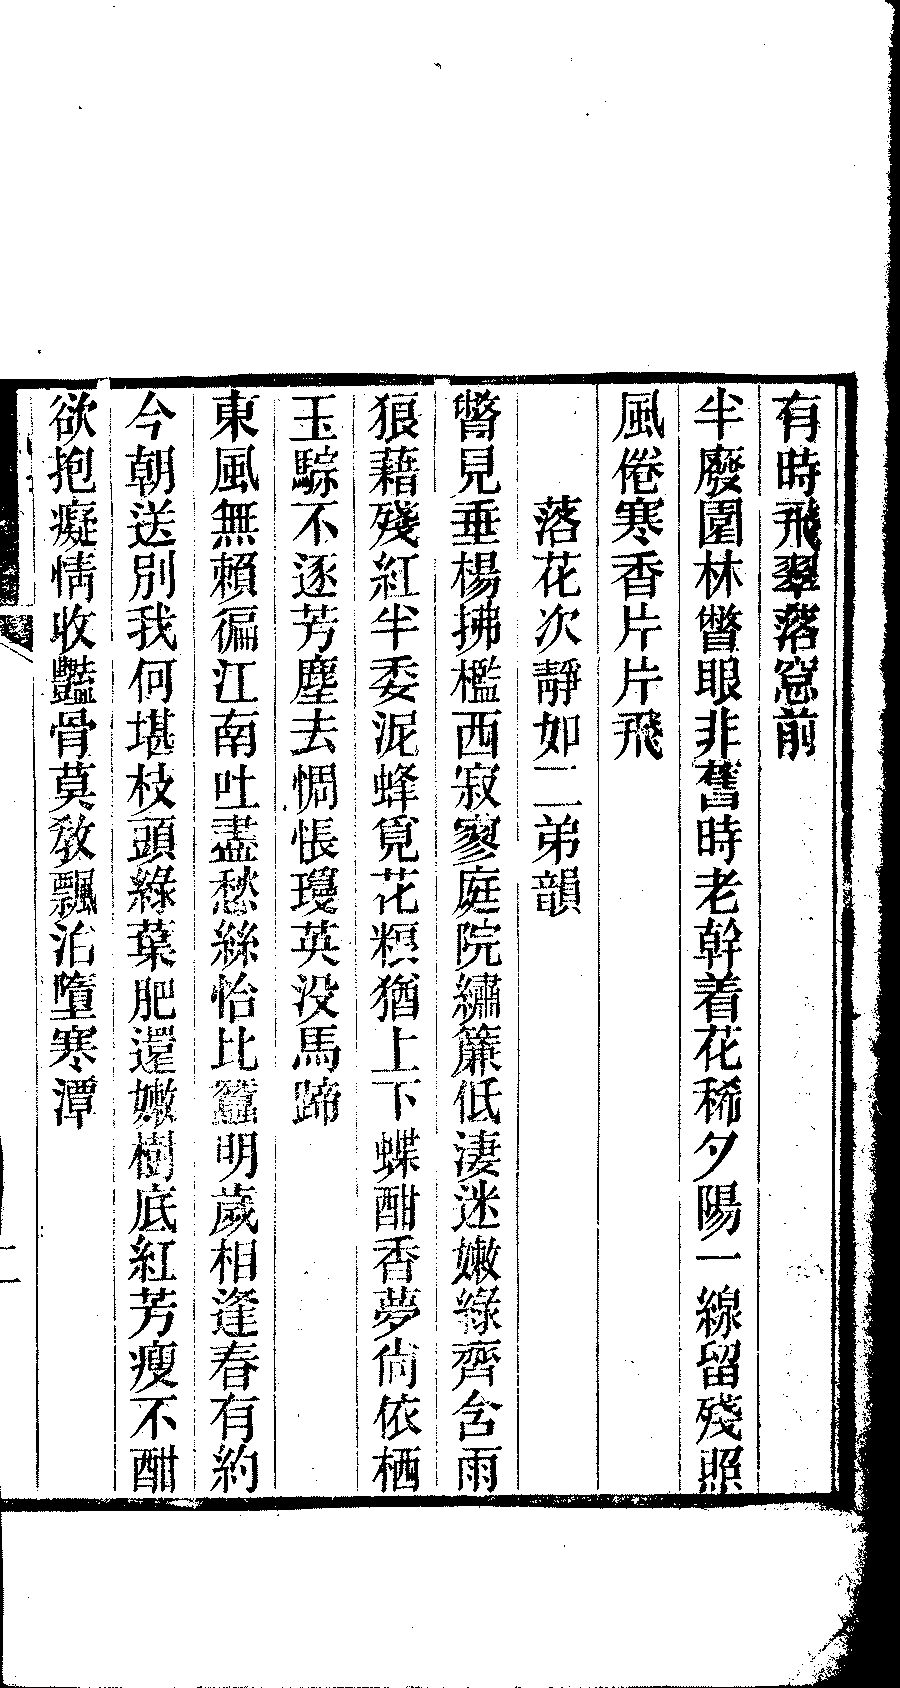 有時飛翠落窻前
半廢園林瞥眼非舊時老幹着花稀夕陽一線留殘照
風倦寒香片片飛
落花次靜如二弟韻
瞥見垂楊拂檻西寂寥庭院繡簾低淒迷嫩綠齊含雨
狼藉殘紅半委泥蜂覓花糧猶上下蝶酣香夢尙依栖
玉驄不逐芳塵去惆悵瓊英没馬蹄
東風無賴徧江南吐盡愁絲恰比蠶明歲相逢春有約
今朝送別我何堪枝頭綠葉肥還嫩樹底紅芳瘦不酣
欲抱癡情收豔骨莫敎飄泊墮寒潭